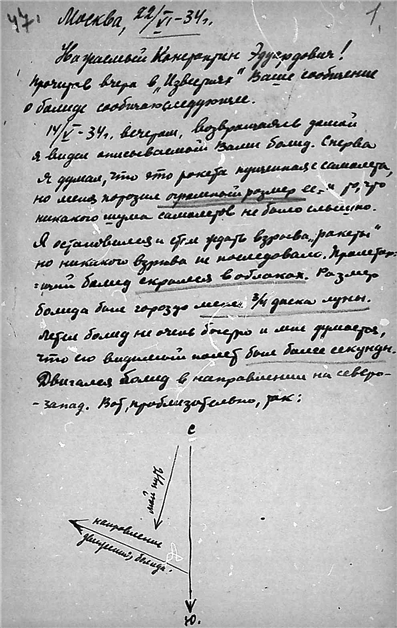 47
Москва, 22/VI-34г.
1.
Уважаемый Константин Эдуардович!
Прочитав вчера в „Известиях" Ваше сообщение
о болиде сообщаю следующее.
14/V-34г. вечером, возвращаясь домой
я видел описываемый Вами болид. Сперва
я думал, что это ракета пущенная с самолета,
но меня поразил огромный размер ее и то, что
никакого шума самолетов не было слышно.
Я остановился и стал ждать взрыва „ракеты"
но никакого взрыва не последовало.
болид скрылся в облаках. Размер
болида был гораздо менее 3/4 диска луны.
Летел болид не очень быстро и мне думается,
что его видимый полет был более секунды.
Двигался болид в направлении на северо-
-запад. Вот, приблизительно, так:
С
мой путь
направление
болида.
Ю.